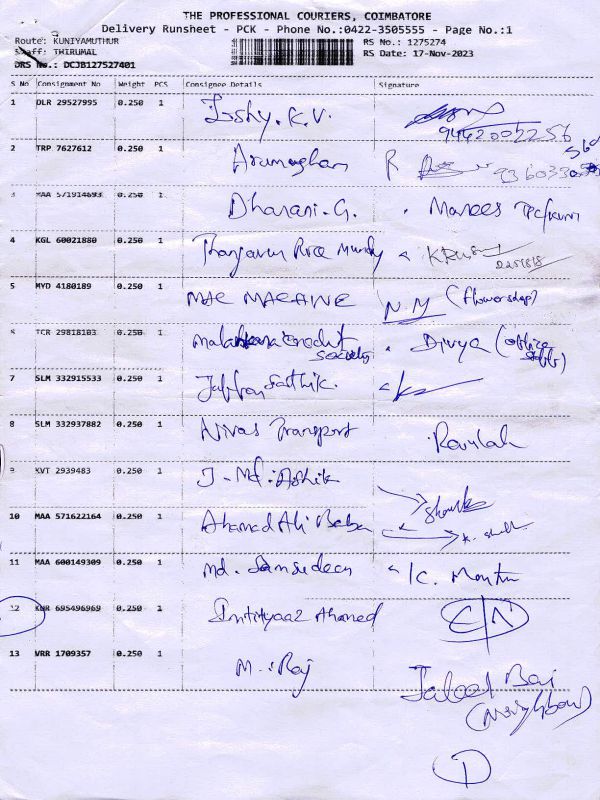 THE PROFESSIONAL COURIERS, COIMBATORE
Delivery Runsheet - PCK - Phone No.:0422-3505555 - Page No.:1
Route: KUNIYAMUTHUR RS No.: 1275274
Staff: THIRUMAL RS Date: 17-Nov-2023
DRS No.: DCJB127527401
S No Consignment No Weight PCS Consignee Details Signature
1 DLR 29527995 0.250 1 K.V.
2 TRP 7627612 0.250 1 Arumugham R
3 MAA 571914693 0.250 1 Dharani.G.
4 KGL 60021880 0.250 1 Thanjavur Rice Mundy
5 MYD 4180189 0.250 1 MAC MACHINE N.M (flowershop)
6 TCR 29818103 0.250 1 credit society Divya (office staff)
7 SLM 332915533 0.250 1 Sathik.
8 SLM 332937882 0.250 1 Nivas Transport
9 KVT 2939483 0.250 1 J. Md. Ashik
10 MAA 571622164 0.250 1 Ahamed Ali Baba
11 MAA 600149309 0.250 1 Md. Samsudeen K.
12 KNR 695496969 0.250 1 Imtiyaaz Ahamed C/N
13 VRR 1709357 0.250 1 M. Raj Bai
(Neighbour)
1